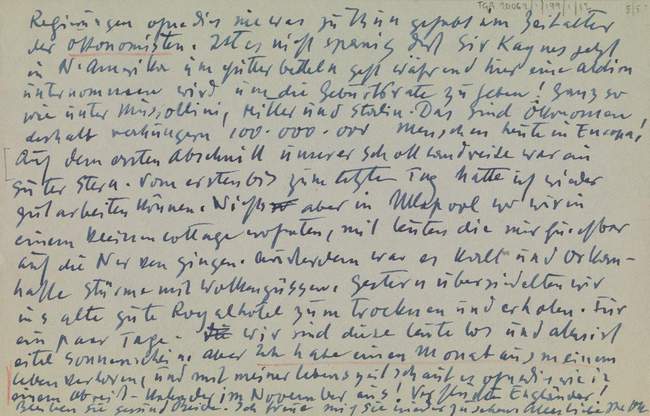 TGA 20069/1/179/1/12
Regierungen ohnedies nie was zu thun gehabt im Zeitalter
der Ökonomisten. Ist es nicht spassig dass Sir Kaynes jetzt
in N. Amerika um Güter betteln geht während hier eine action
unternommen wird um die Geburtsrate zu heben! Ganz so
wie unter Missollini, Hitler und Stalin. Das sind Ökonomen!
deshalb verhungern 100.000.000 Menschen heute in Europa!
Auf dem ersten Abschnitt unserer Schottlandreise war ein
guter Stern. Vom ersten bis zum letzten Tag hatte ich wieder
gut arbeiten können. Nicht aber in Ullapool wo wir in
einem kleinen Cottage wohnten, mit Leuten die mir furchtbar
auf die Nerven gingen. Ausserdem war es kalt und Orkan-
hafte Stürme mit Wolkengüssen. Gestern übersiedelten wir
ins alte gute Royalhotel zum trocknen und erholen. Für
ein paar Tage. Wir sind diese Leute los und alles ist
eitel Sonnenschein. Aber ich habe einen Monat aus meinem
Leben verloren, und mit meiner Lebenszeit schaut es ohnedies wie in
einem Abreiss-Kalender im November aus!
Bleiben Sie gesund beide. Ich freue mich Sie wieder zu sehen. Alles